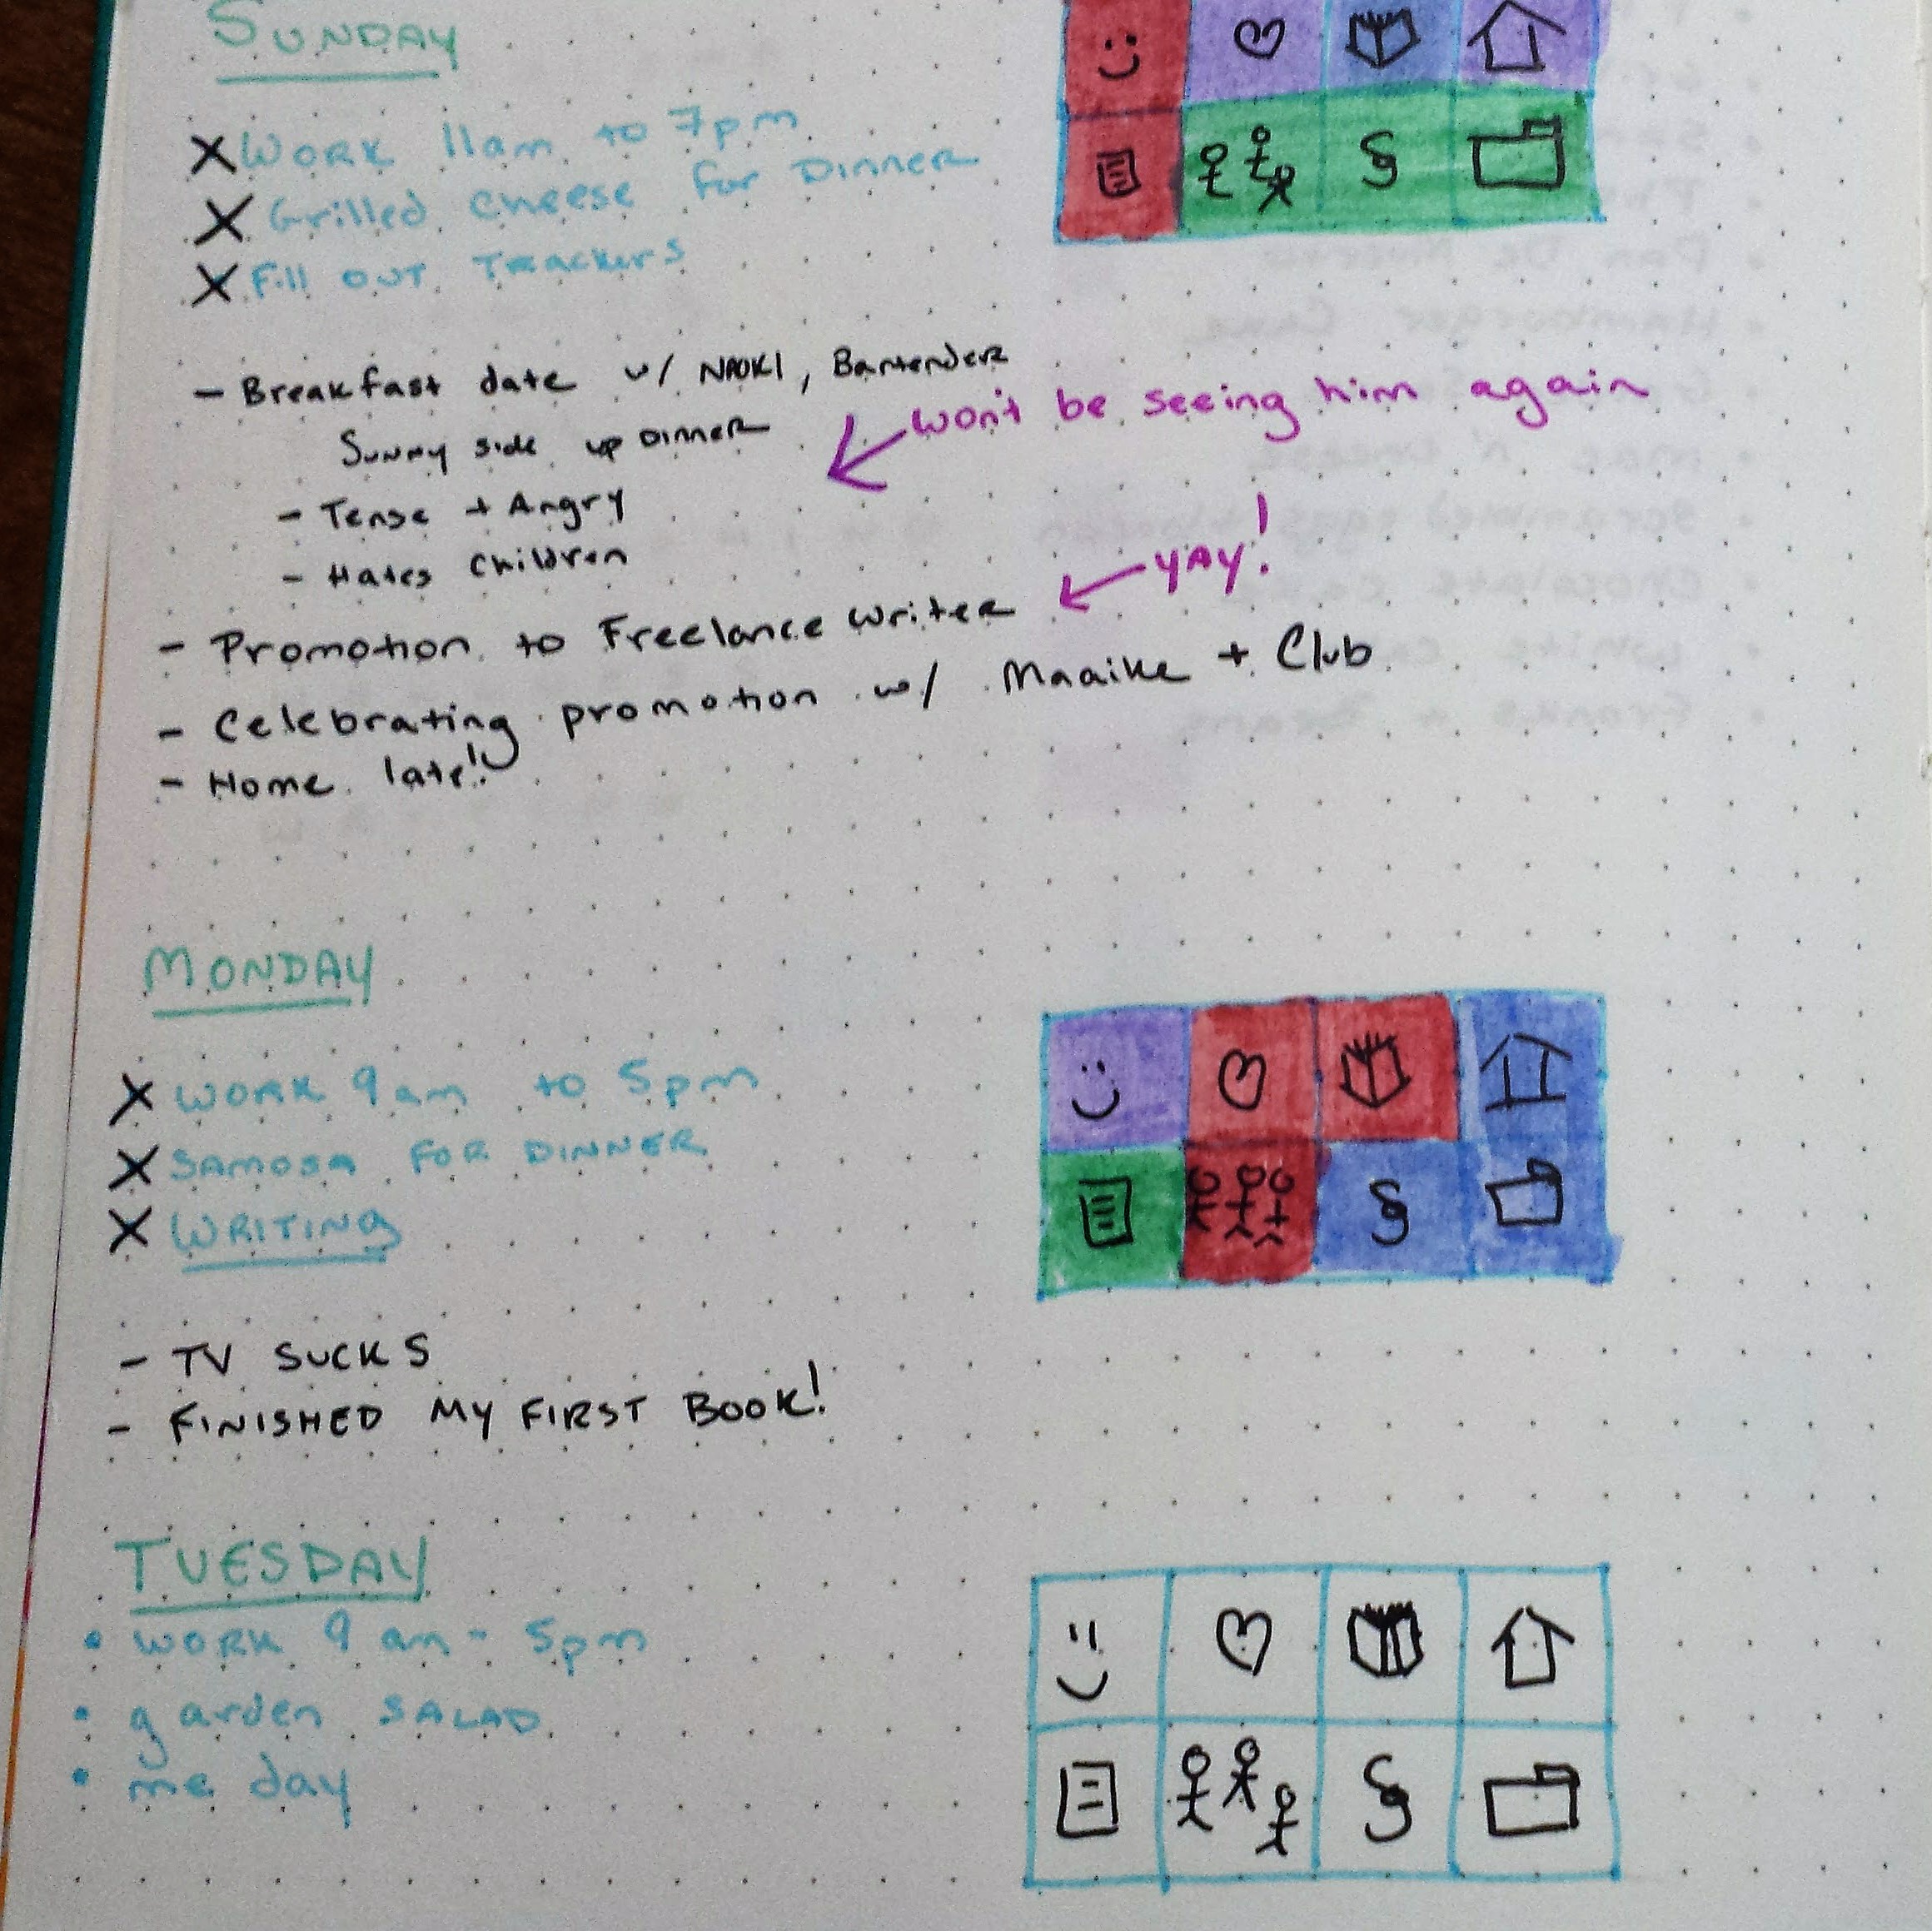 SUNDAY
X WORK 11am to 7pm
X Grilled cheese for Dinner
X Fill out TRackers
- Breakfast date w/ NAOKI, Bartender
Sunny side up Dinner
won't be seeing him again
- Tense + Angry
- Hates children
YAY!
- Promotion to Freelance writer
- Celebrating promotion w/ Maaike + Club
- Home late!
MONDAY
X WORK 9am to 5pm
X SAMOSA FOR DINNER
X WRITINg
- TV SUCKS
- FINISHED MY FIRST BOOK!
TUESDAY
• WORK 9 am - 5pm
• garden SALAD
• me day